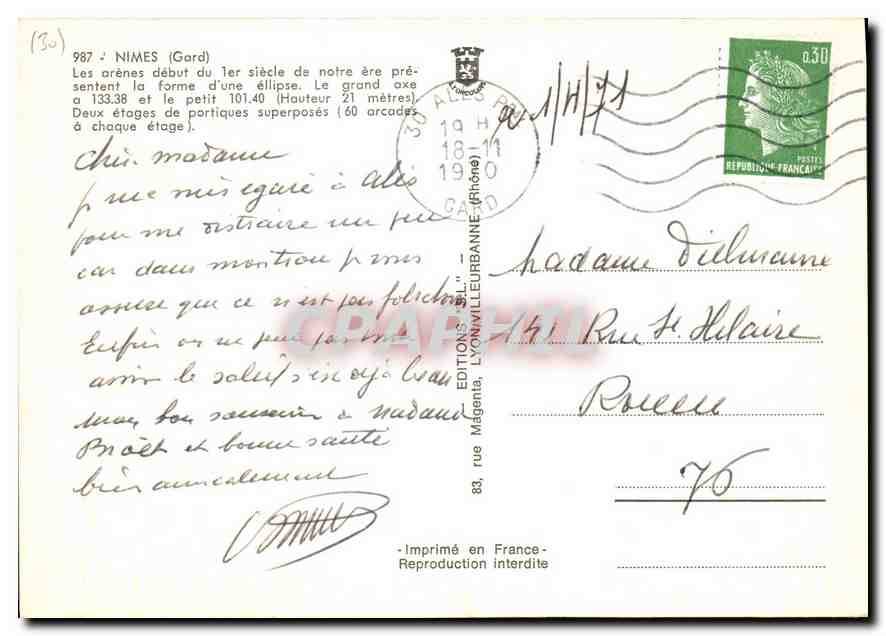 (30)
987 - NIMES (Gard)
Les arènes début du 1er siècle de notre ère pré-
sentent la forme d'une éllipse. Le grand axe
a 133.38 et le petit 101.40 (Hauteur 21 mètres).
Deux étages de portiques superposés (60 arcades
à chaque étage).
Chère madame
je me suis egaré à Alès
pour me distraire un peu
car dans mon trou je vous
assure que ce n'est pas folichon
Enfin on ne peut pas tout
avoir le soleil c'est déjà beau
mon bon souvenir à madame
et bonne santé
bien amicalement
30 ALES
19 H
18-11
1970
GARD
1/4/71
0,30
POSTES
REPUBLIQUE FRANCAISE
EDITIONS "S.L." -
83, rue Magenta, LYON-VILLEURBANNE (Rhône)
CPAPHIL
madame Dielmanne
141 Rue St Hilaire
Rouen
76
-Imprimé en France-
Reproduction interdite